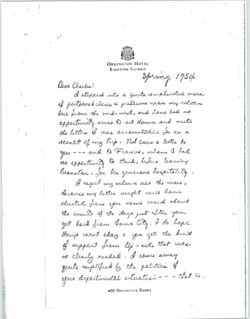 ORRINGTON HOTEL
EVANSTON, ILLINOIS
Spring 1954
Dear Charles:
I stepped into a quite complicated mess
of postponed items & problems upon my return
here from the mid-west, and have had no
opportunity since to sit down and write
the letters I was accountable for as a
result of my trip. Not even a letter to
you --- and to Francis, whom I had
no opportunity to thank, before leaving
Evanston, for his gracious hospitality.
I regret my silence all the more,
because my letter might well have
elicited from you some word about
the events of the days just after you
got back from Iowa City. I do hope
things went okay & you got the kind
of support from life-side that was
so clearly needed. I came away
quite mystified by the politics of
your departmental situation --- that is,
ORRINGTON